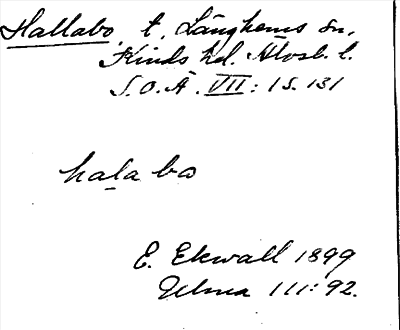 Hallabo, t. Länghems sn,
Kinds hd. Älvsb. l.
S.O.Ä. VII: 1 S. 131
hala bo
E. Ekwall 1899
Uema 111: 92.